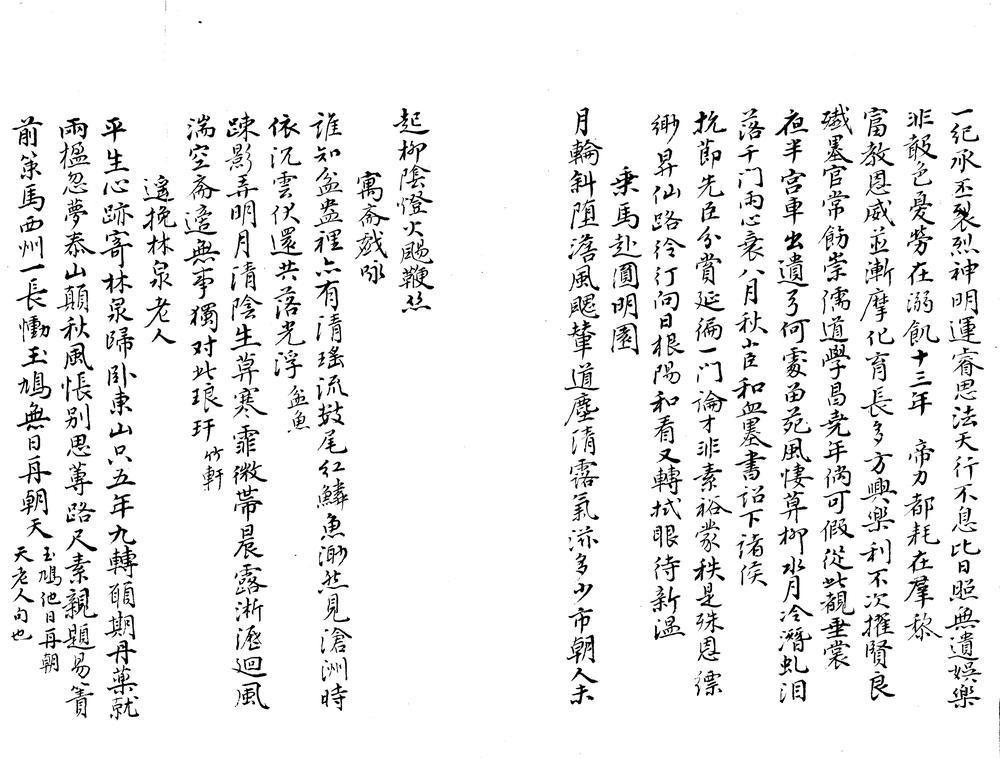 一紀承丕裂烈神明運睿思法天行不息比日照無遺娛樂
非殽色憂勞在溺飢十三年　帝力都耗在羣黎
富教恩威並漸摩化育長多方興樂利不次擢賢良
墨官常飭崇儒道學昌堯年倘可假從此覩垂裳
夜半宮車出遺弓何處留苑風悽草柳水月冷潛虬淚
落千門雨心衰八月秋小臣和血墨書詔下諸侯
抗節先臣分賞延徧一門論才非素裕蒙秩是殊恩縹
緲昇仙路伶仃向日根陽和看又轉拭眼待新溫
乘馬赴圓明園
月輪斜墮澹風颸輦道塵清露氣滋多少市朝人未
起柳陰燈火颺鞭丝
寓齋戲咏
誰知盆盎裡亦有清瑤流鼓尾紅鱗魚渺然見滄洲時
依沉雲伏還共落光浮 盆魚
踈影弄明月清陰生草寒霏微帶晨露淅瀝迴風
湍空齋澹無事獨对此琅玕 竹軒
遙挽林泉老人
平生心跡寄林泉歸臥東山只五年九轉頤期丹藥就
兩楹忽夢泰山顛秋風悵别思蓴路尺素親題易簀
前策馬西州一長慟玉鳩無日再朝天 玉鳩他日再朝
天老人句也